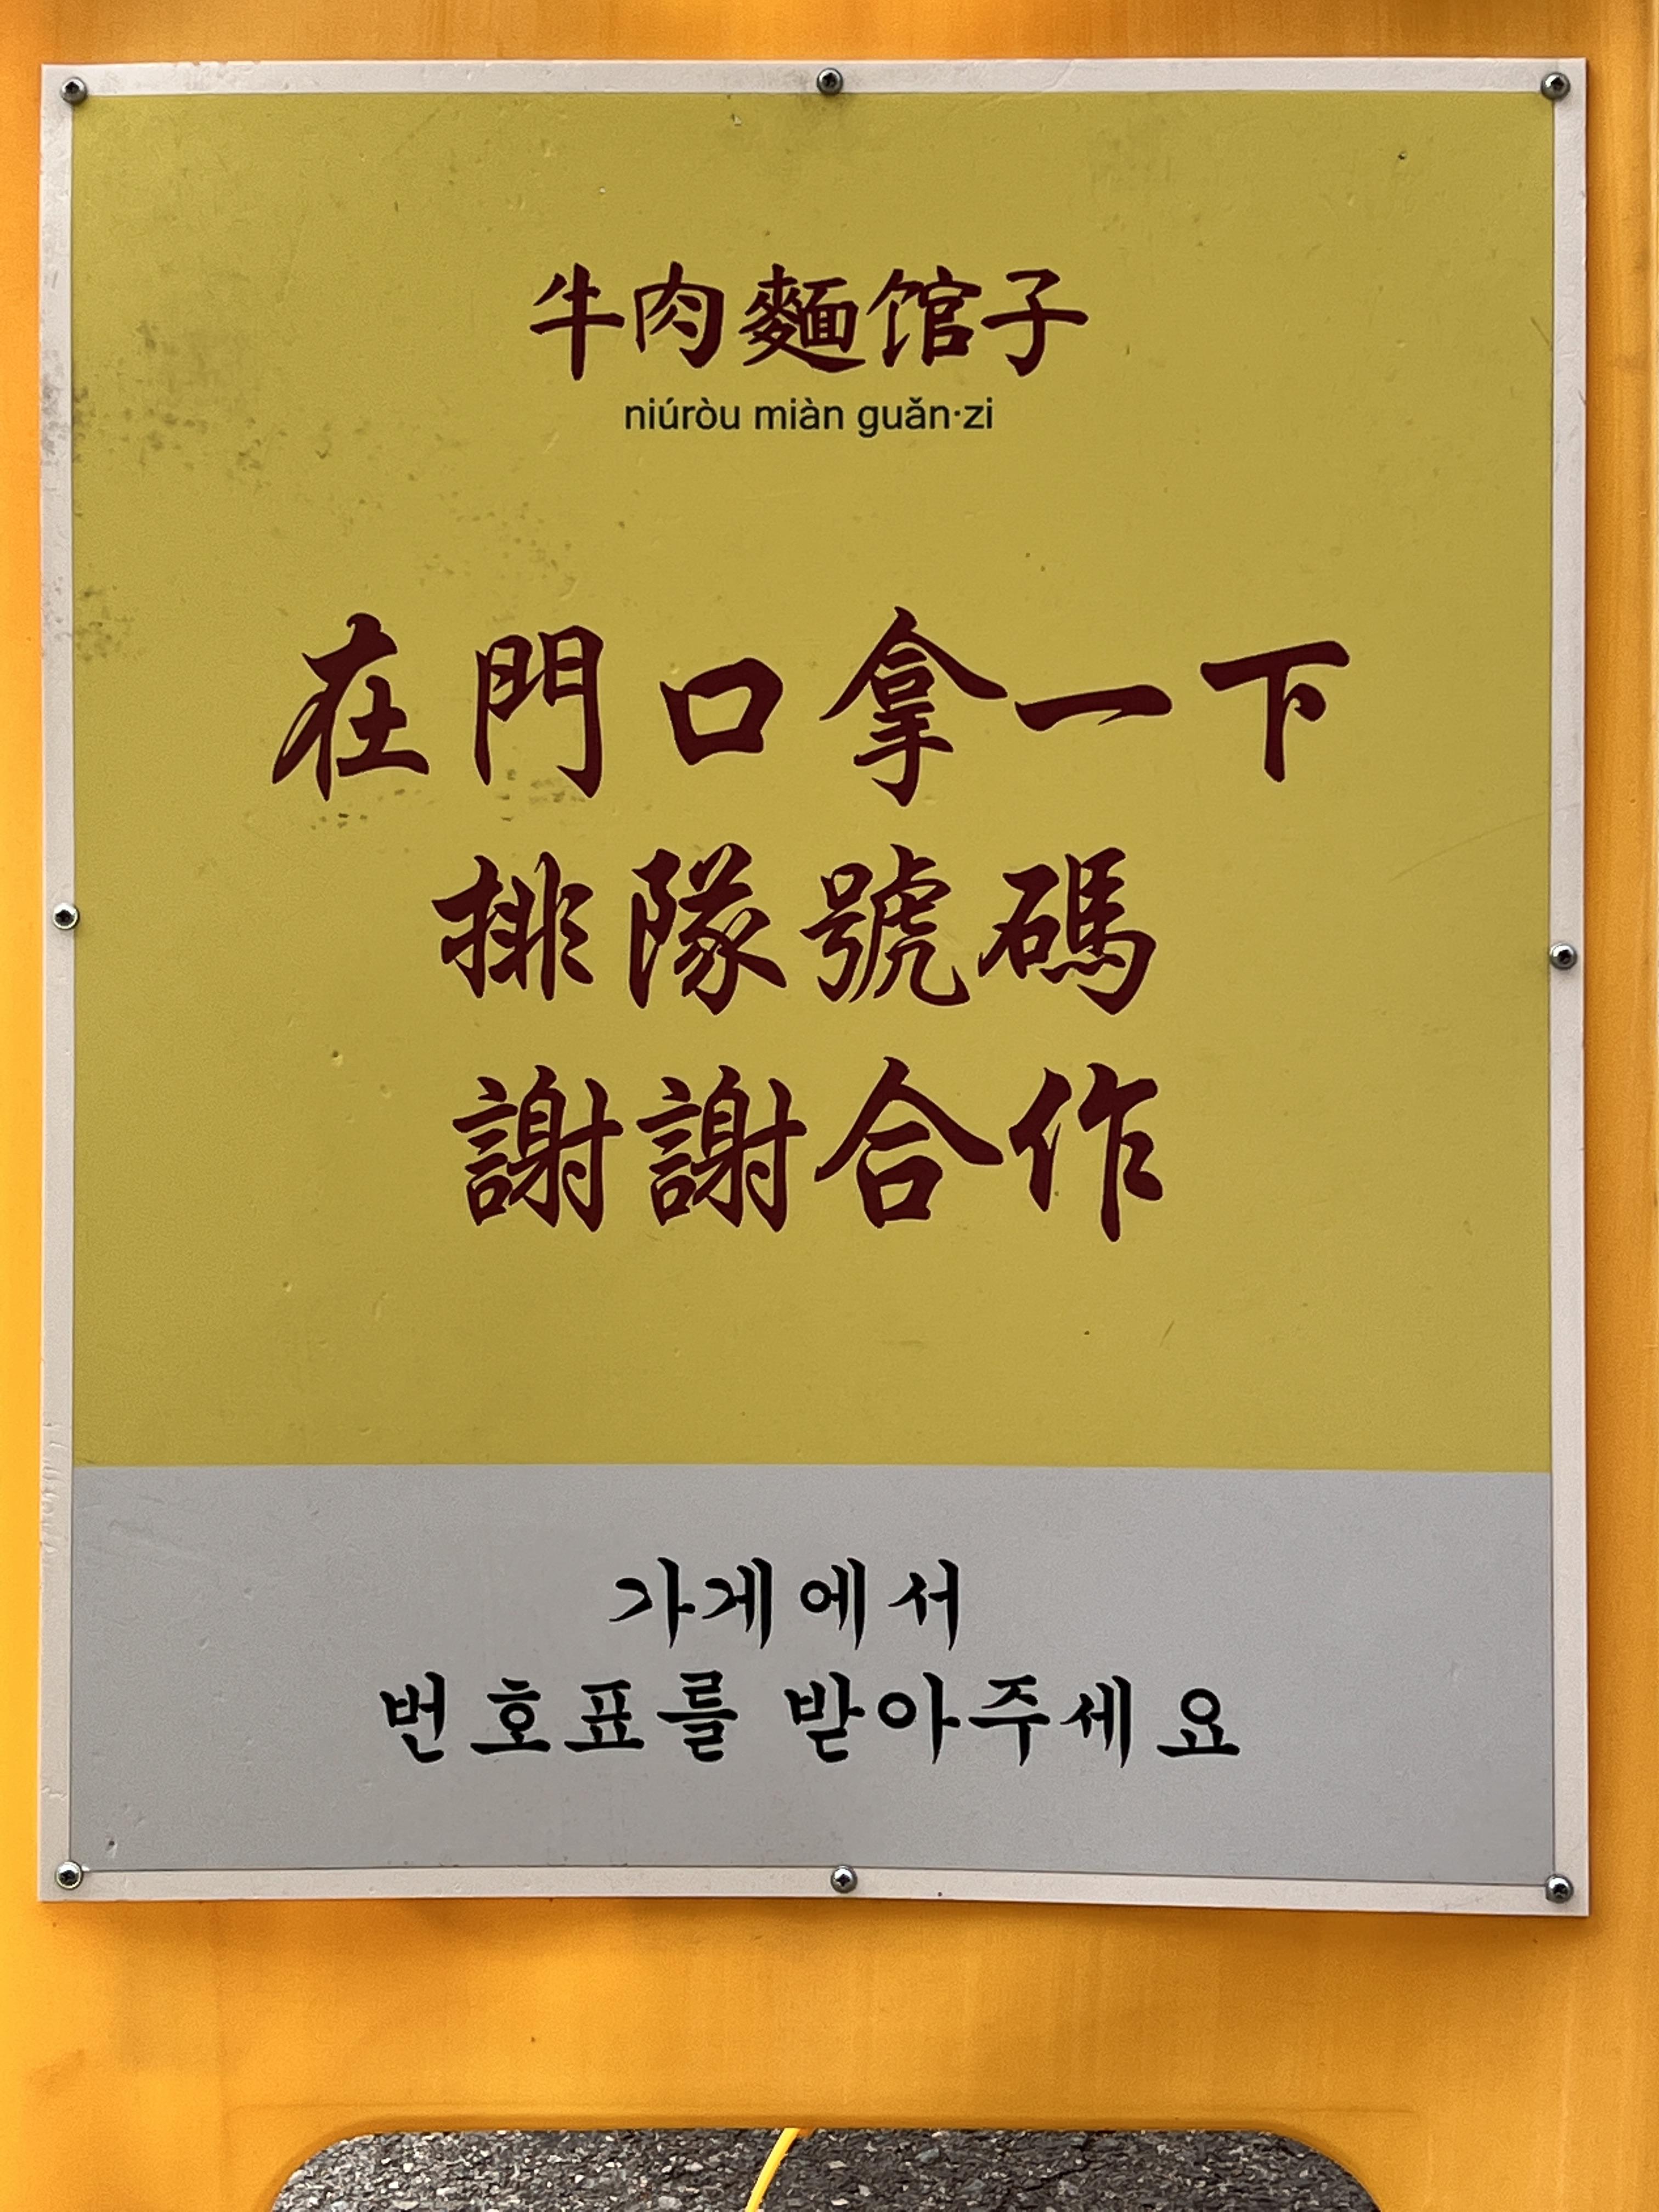 牛肉麵馆子
niúròu miàn guǎn·zi
在門口拿一下
排隊號碼
謝謝合作
가게에서
번호표를 받아주세요